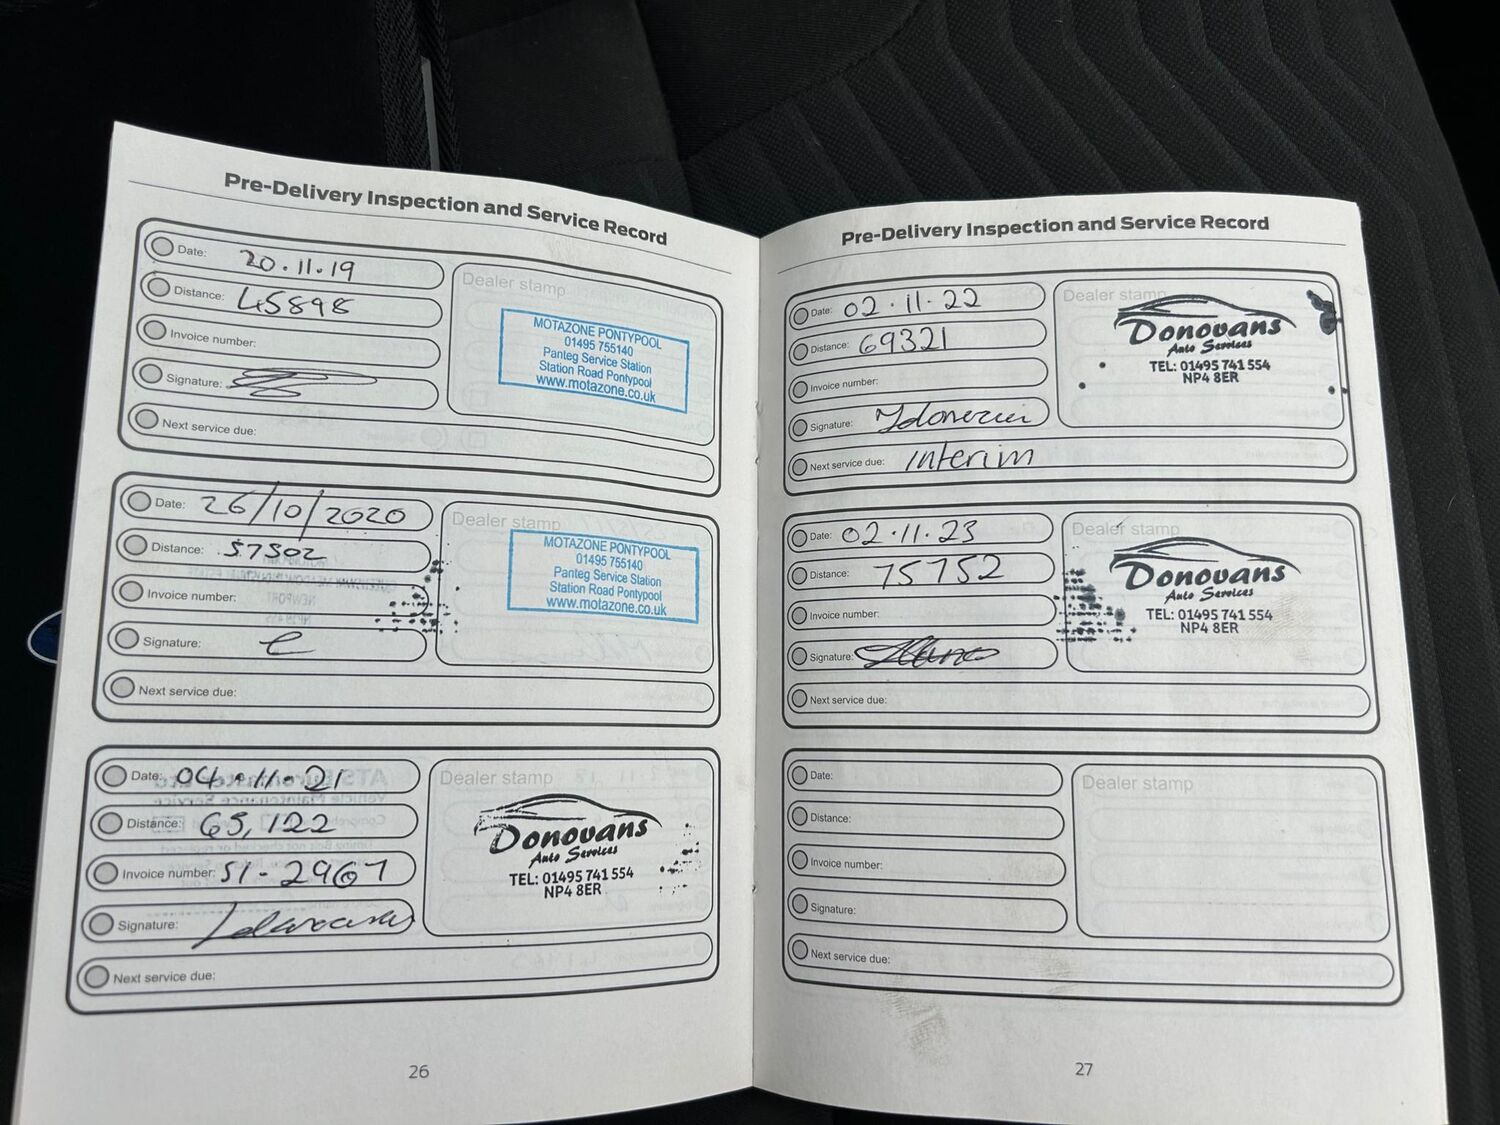 Pre-Delivery Inspection and Service Record
Date: 20.11.19
Distance: 45898
Invoice number:
Signature:
Next service due:
Dealer stamp
MOTAZONE PONTYPOOL
01495 755140
Panteg Service Station
Station Road Pontypool
www.motazone.co.uk
Date: 26/10/2020
Distance: 57502
Invoice number:
Signature:
Next service due:
Dealer stamp
MOTAZONE PONTYPOOL
01495 755140
Panteg Service Station
Station Road Pontypool
www.motazone.co.uk
Date: 04.11.21
Distance: 65,122
Invoice number: SI-2967
Signature:
Next service due:
Dealer stamp
Donovans
Auto Services
TEL: 01495 741 554
NP4 8ER
26
Pre-Delivery Inspection and Service Record
Date: 02.11.22
Distance: 69321
Invoice number:
Signature:
Next service due: Interim
Dealer stamp
Donovans
Auto Services
TEL: 01495 741 554
NP4 8ER
Date: 02.11.23
Distance: 75752
Invoice number:
Signature:
Next service due:
Dealer stamp
Donovans
Auto Services
TEL: 01495 741 554
NP4 8ER
Date:
Distance:
Invoice number:
Signature:
Next service due:
Dealer stamp
27